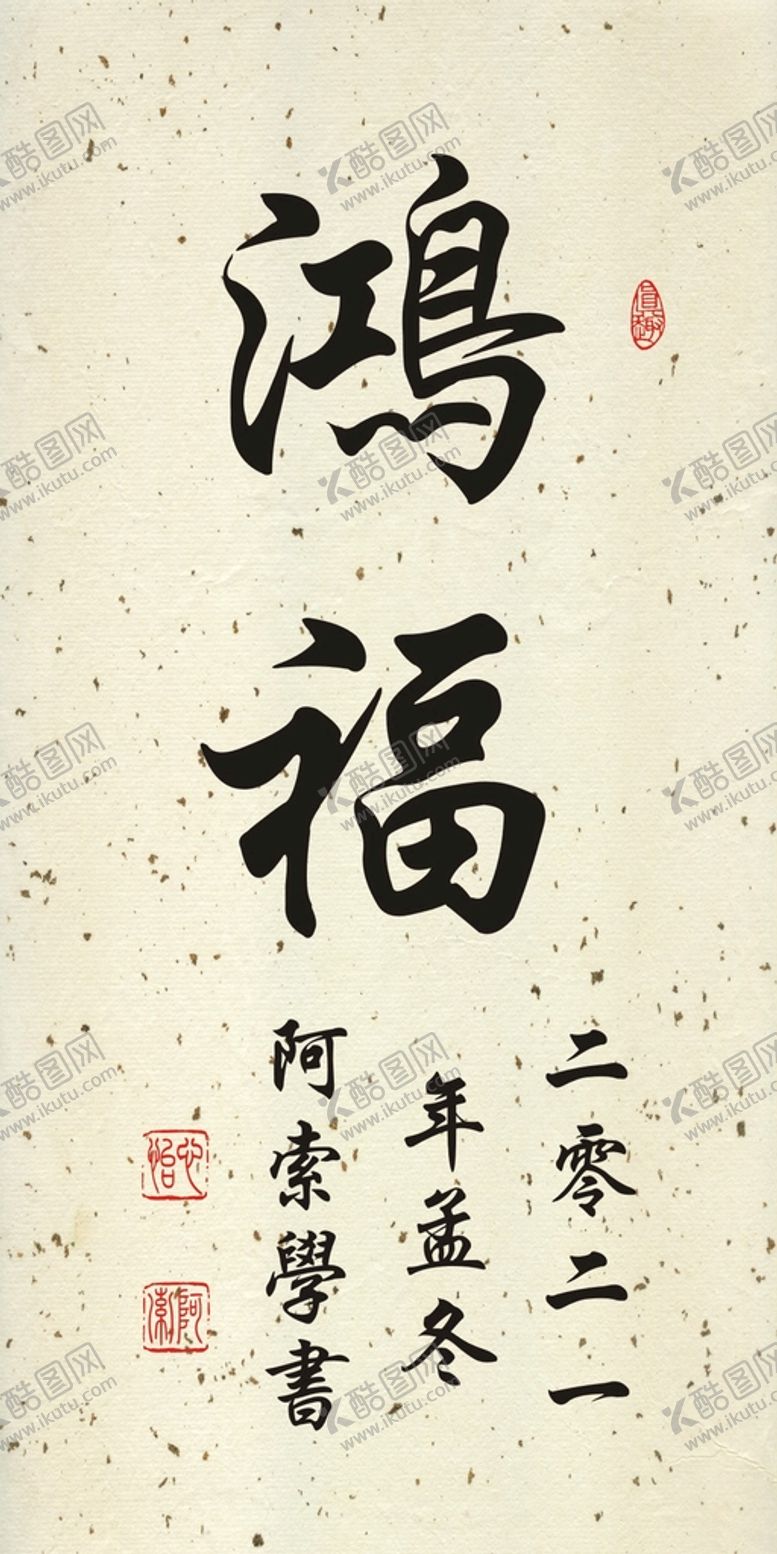 鸿
福
二零二一
年孟冬
阿索學書
阿索
酷图网
www.ikutu.com